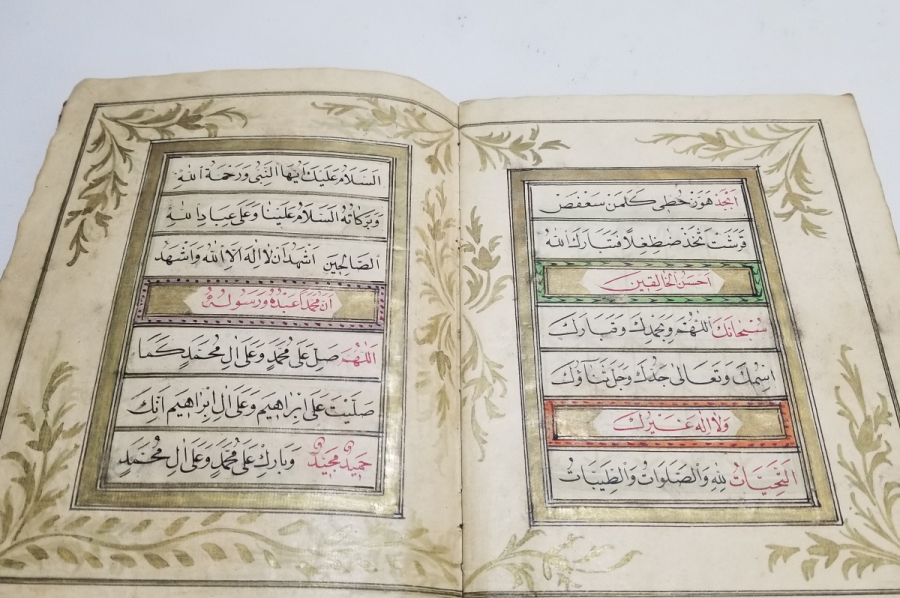 ابجد هوز حطی كلمن سعفص
قرشت ثخذ ضظغلا فتبارك الله
احسن الخالقين
سبحانك اللهم وبحمدك وتبارك
اسمك وتعالى جدك وجل ثناؤك
ولا اله غيرك
التحيات لله والصلوات والطيبات
السلام عليك ايها النبى ورحمة الله
وبركاته السلام علينا وعلى عباد الله
الصالحين اشهد ان لا اله الا الله واشهد
ان محمدا عبده ورسوله
اللهم صل على محمد وعلى ال محمد كما
صليت على ابراهيم وعلى ال ابراهيم انك
حميد مجيد وبارك على محمد وعلى ال محمد